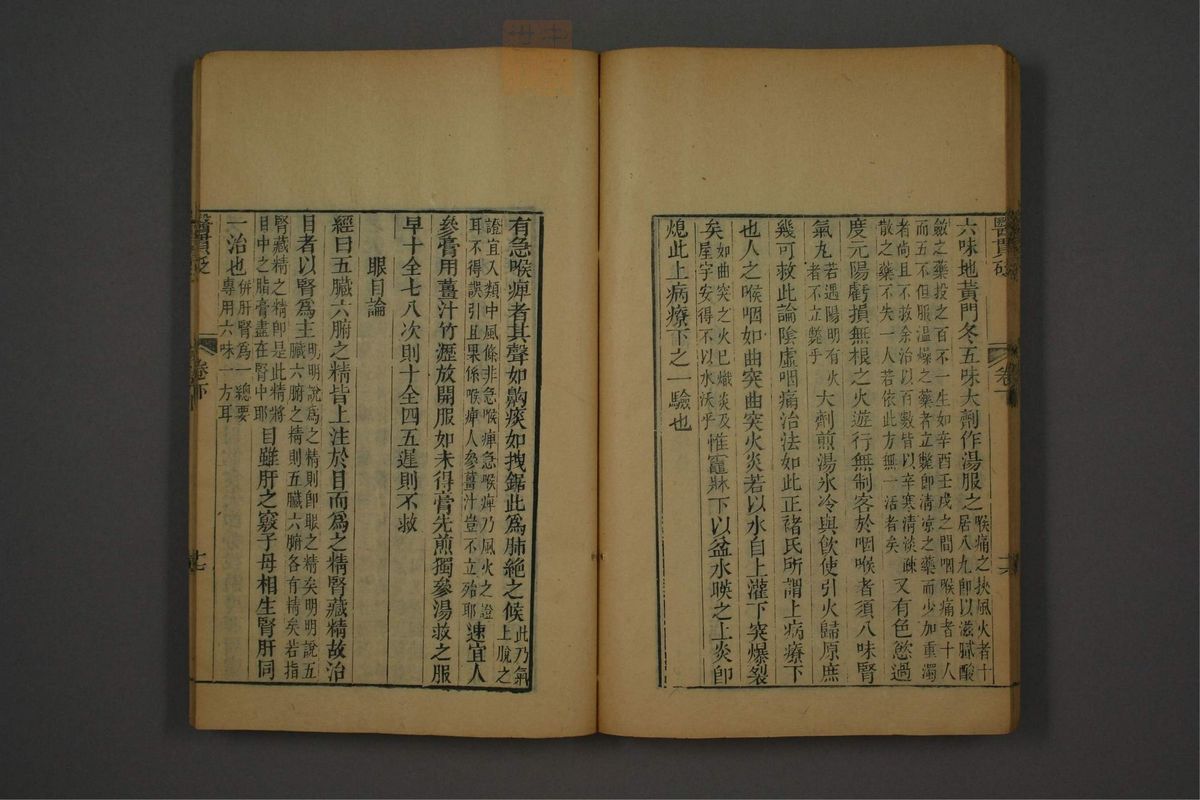 醫貫砭
卷下
六味地黃門冬五味大劑作湯服之喉痛之挾風火者十
居八九卽以滋膩酸
斂之藥投之百不一生如辛酉壬戌之間咽喉痛者十人
而五不但服溫燥之藥者立斃卽清涼之藥而少加重濁
者尚且不救余治以百數皆以辛寒清淡疎
散之藥不失一人若依此方無一活者矣又有色慾過
度元陽虧損無根之火遊行無制客於咽喉者須八味腎
氣丸若遇陽明有火
者不立斃乎大劑煎湯氷冷與飲使引火歸原庶
幾可救此論陰虛咽痛治法如此正褚氏所謂上病療下
也人之喉咽如曲突曲突火炎若以水自上灌下突爆裂
矣如曲突之火巳熾炎及
屋宇安得不以水沃乎惟竈牀下以盆水映之上炎卽
熄此上病療下之一驗也
有急喉痺者其聲如鼾痰如拽鋸此爲肺絶之候此乃氣
上脫之
證宜入類中風條非急喉痺急喉痺乃風火之證
耳不得誤引且果係喉痺人參薑汁豈不立殆耶速宜人
參膏用薑汁竹瀝放開服如未得膏先煎獨參湯救之服
早十全七八次則十全四五遲則不救
眼目論
經曰五臟六腑之精皆上注於目而爲之精腎藏精故治
目者以腎爲主明明說爲之精則卽眼之精矣明明說五
臟六腑之精則五臟六腑各有精矣若指
腎藏精之精卽是此精將
目中之脂膏盡在腎中耶目雖肝之竅子母相生腎肝同
一治也倂肝腎爲一總要
專用六味一方耳
醫貫砭
卷下
七